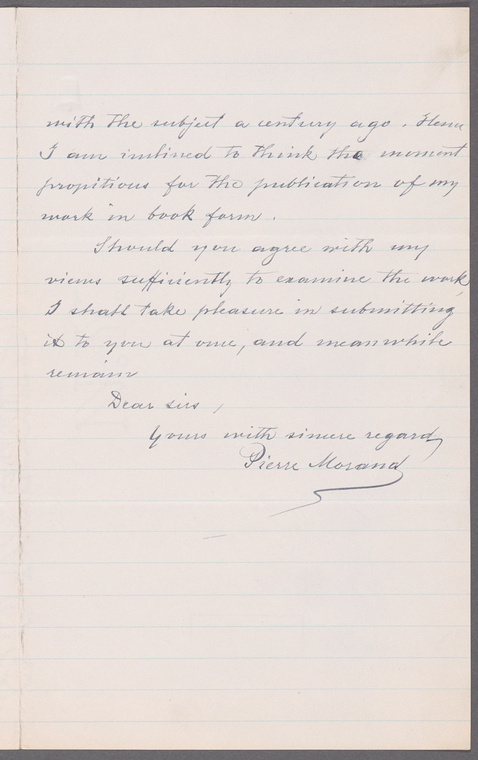 with the subject a century ago. Hence
I am inclined to think the moment
propitious for the publication of my
work in book form.
Should you agree with my
views sufficiently to examine the work,
I shall take pleasure in submitting
it to you at once, and meanwhile
remain
Dear sirs,
Yours with sincere regard,
Pierre Morand